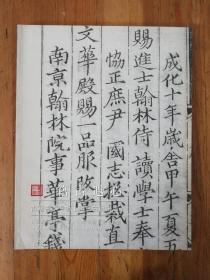 成化十年歲舎甲午夏五
賜進士翰林侍讀學士奉
恊正庶尹 國志捴裁直
文華殿賜一品服改掌
南亰翰林院事華亭錢